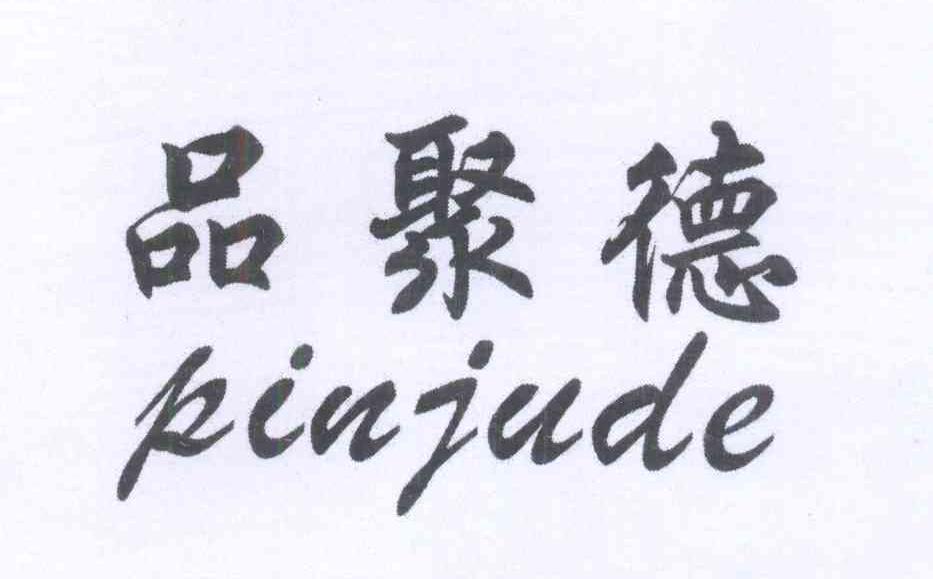 品聚德
pinjude